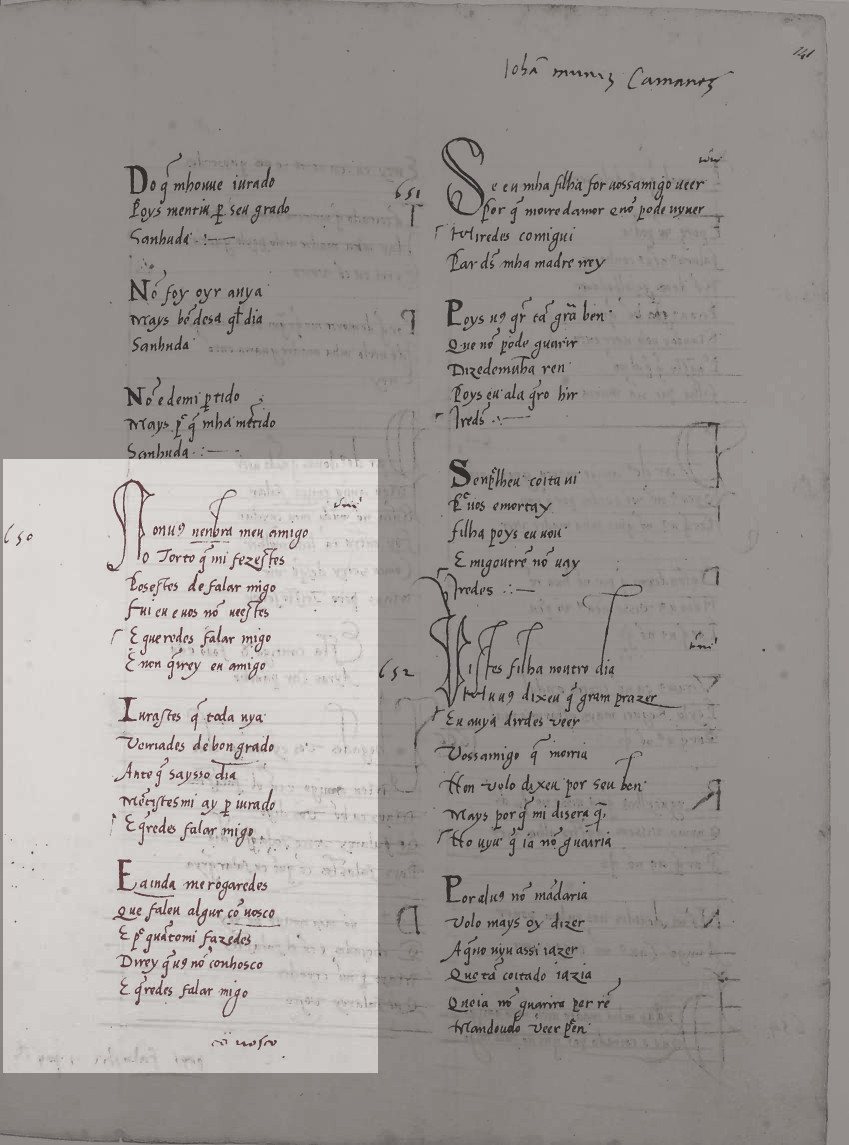 Iohã muniz Camanez
141
Do q̃ mhouue iurado
Poys mentiu ꝑ seu grado
Sanhuda
Nõ foy oyr anya
Mays bẽ desa q̃l dia
Sanhuda
Nõ e demi ꝑtido
Mays ꝑ q̃ mha mẽtido
Sanhuda
650
Nonuꝯ nenbra meu amigo
No Torto q̃ mi fezestes
Posestes de falar migo
Fui eu e uos nõ ueestes
E queredes falar migo
E non q̃rrey eu amigo
Iurastes q̃ toda uya
Verriades de bon grado
Ante q̃ saysso dia
Mẽtistesmi ay ꝑ iurado
E q̃redes falar migo
E ainda me rogaredes
Que faleu algur cõ uosco
E ꝑ quãtomi fazedes
Direy q̃ uꝯ nõ conhosco
E q̃redes falar migo
cõ uosco
651
Se eu mha filha for uossamigo ueer
Por q̃ moire damor e nõ pode uyuer
Hiredes comigui
Par ds̃ mha madre irey
Poys uꝯ q̃r tã grã ben
Que nõ pode guarir
Dizedemunha ren
Poys eu ala q̃ro hir
Ireds̃
Senp̃lheu coita ui
Pe uos emortay
Filha poys eu uou
E migoutrẽ nõ uay
Iredes
652
Vistes filha noutro dia
Huuꝯ dixeu q̃ gram prazer
Eu anya dirdes veer
Vossamigo q̃ morria
Non volo dixeu por seu ben
Mays porq̃ mi disera q̃
Ho uyu q̃ ia nõ guairia
Por aluꝯ nõ mãdaria
Volo mays oy dizer
A q̃no uyu assi iazer
Que tã coitado iazia
Que ia nõ guarira per rẽ
Mandoudo veer pren